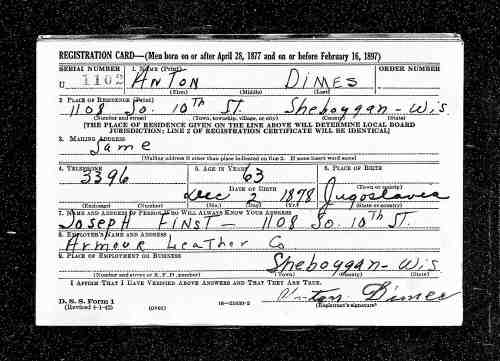 REGISTRATION CARD—(Men born on or after April 28, 1877 and on or before February 16, 1897)
SERIAL NUMBER 1. NAME (Print) ORDER NUMBER
U 1102 ANTON DIMES
(First) (Middle) (Last)
2. PLACE OF RESIDENCE (Print)
1108 So. 10TH ST. Sheboygan - Wis.
(Number and street) (Town, township, village, or city) (County) (State)
[THE PLACE OF RESIDENCE GIVEN ON THE LINE ABOVE WILL DETERMINE LOCAL BOARD
JURISDICTION; LINE 2 OF REGISTRATION CERTIFICATE WILL BE IDENTICAL]
3. MAILING ADDRESS
Same
[Mailing address if other than place indicated on line 2. If same insert word same]
4. TELEPHONE 5. AGE IN YEARS 6. PLACE OF BIRTH
3396 63
DATE OF BIRTH (Town or county)
Dec 2 1878 Jugoslavia
(Exchange) (Number) (Mo.) (Day) (Yr.) (State or country)
7. NAME AND ADDRESS OF PERSON WHO WILL ALWAYS KNOW YOUR ADDRESS
Joseph LINST - 1108 So. 10TH ST.
8. EMPLOYER'S NAME AND ADDRESS
Armour Leather Co
9. PLACE OF EMPLOYMENT OR BUSINESS
Sheboygan - Wis
(Number and street or R. F. D. number) (Town) (County) (State)
I AFFIRM THAT I HAVE VERIFIED ABOVE ANSWERS AND THAT THEY ARE TRUE.
D. S. S. Form 1 Anton Dimes
(Revised 4-1-42) (over) 16—21630-2 (Registrant's signature)